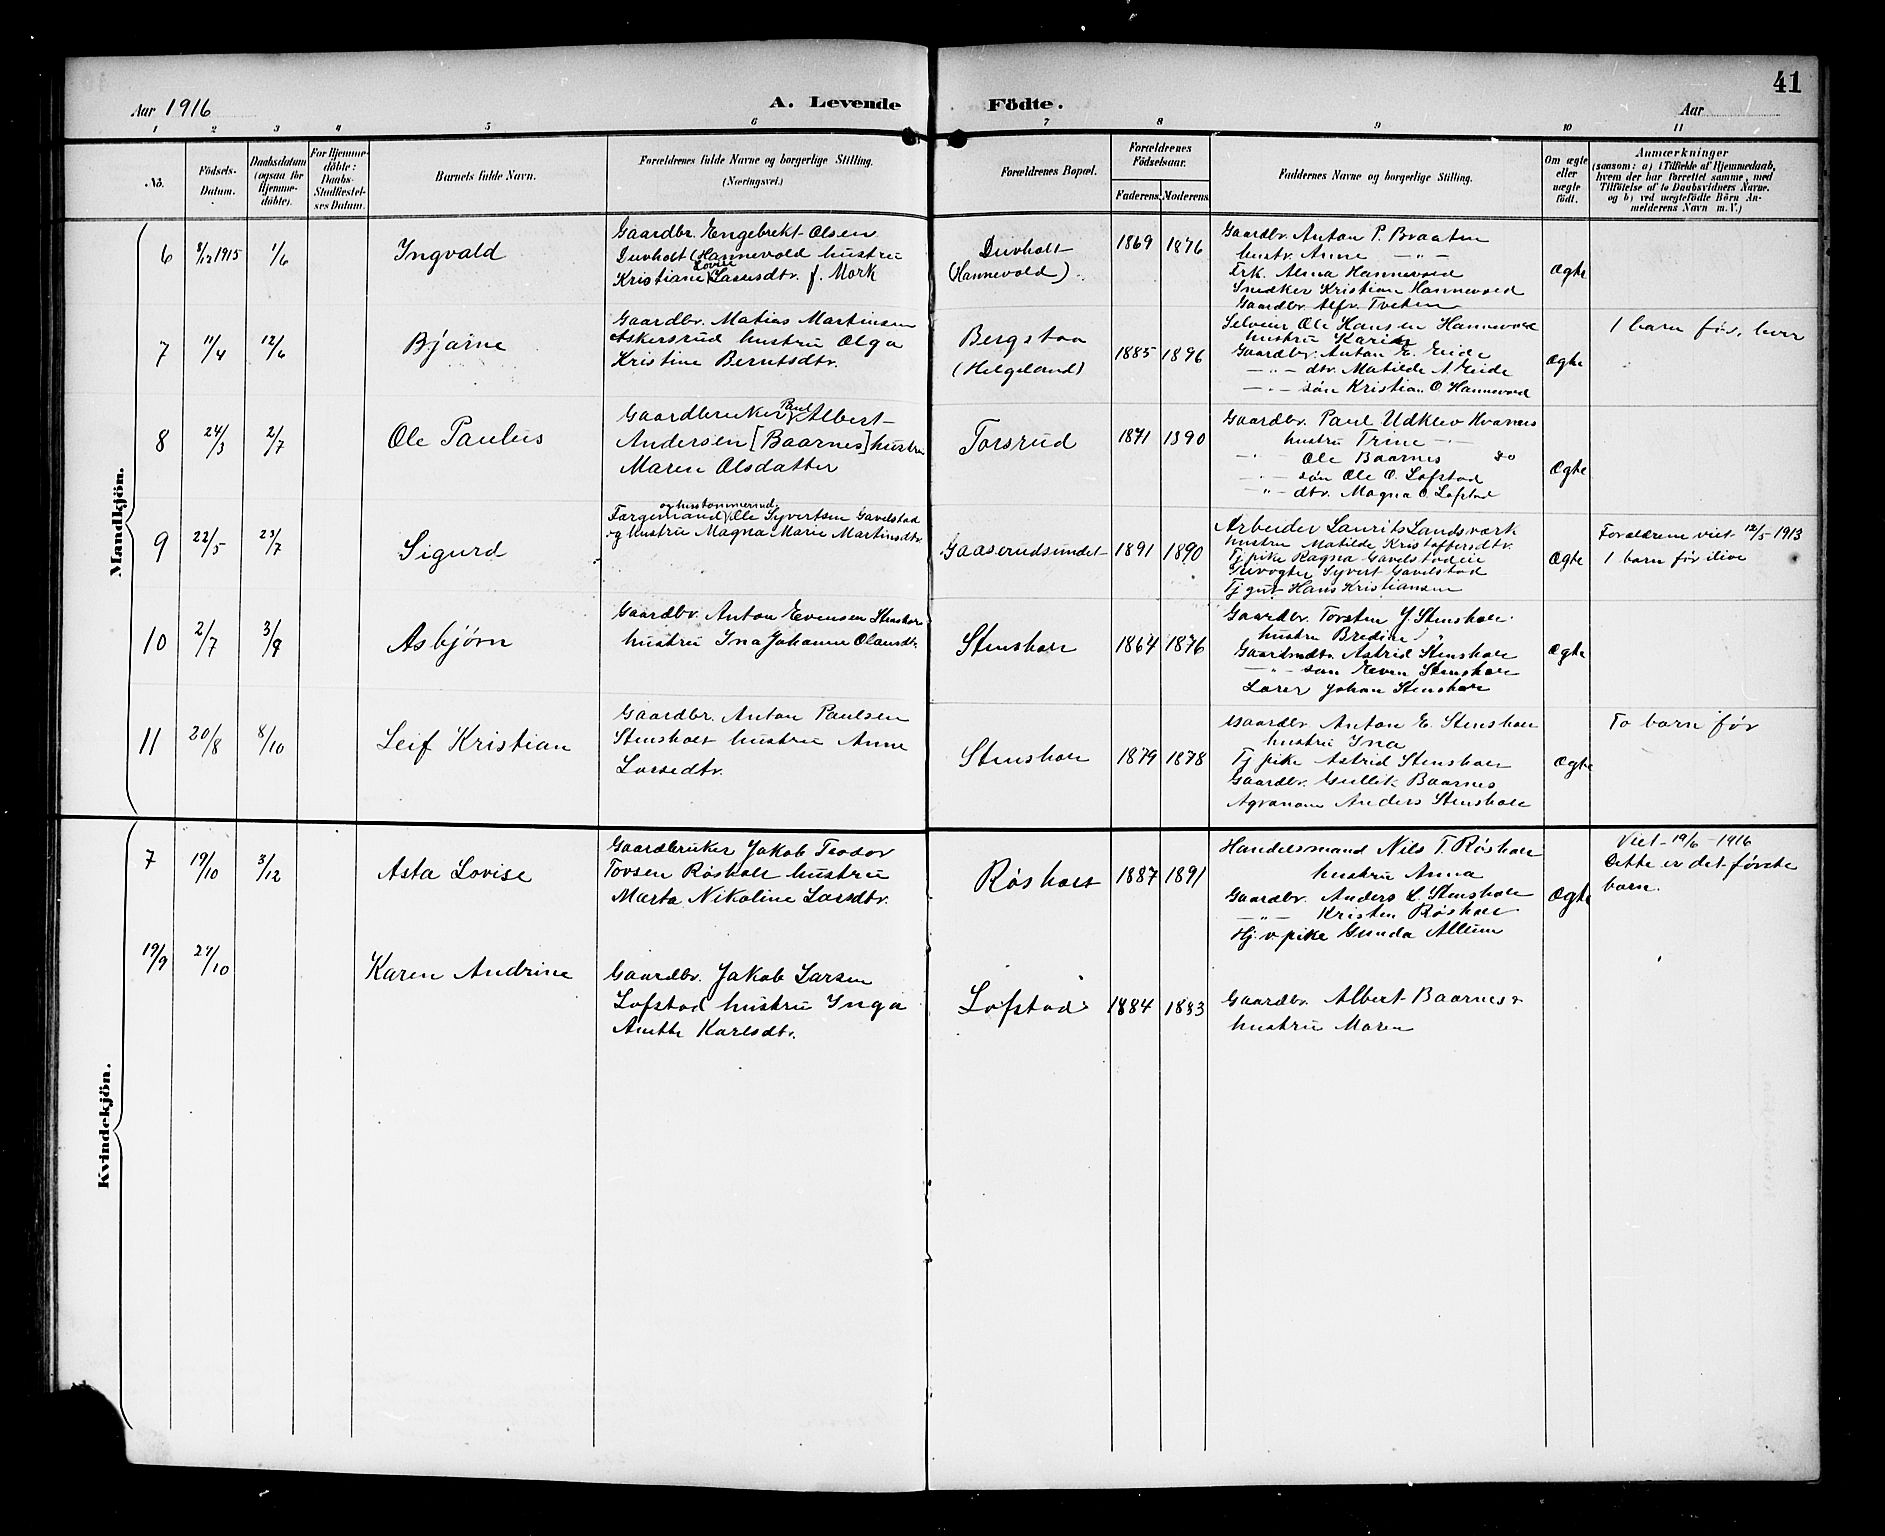 41
Aar 1916
A. Levende Födte.
Aar
1 2 3 4 5 6 7 8 9 10 11
No.
Födsels-
Datum.
Daabsdatum
(ogsaa for
Hjemme-
döbte).
For Hjemme-
döbte:
Daabs-
Stadfestel-
ses Datum.
Barnets fulde Navn.
Forældrenes fulde Navne og borgerlige Stilling.
(Næringsvei.)
Forældrenes Bopæl.
Forældrenes
Födselsaar.
Faderens. Moderens.
Faddernes Navne og borgerlige Stilling.
Om ægte
eller
uægte
födt.
Anmærkninger
(saasom: a) i Tilfælde af Hjemmedaab,
hvem der har forrettet samme, med
Tilföielse af to Daabsvidners Navne.
og b) ved uægtefödte Börn An-
melderens Navn m. V.)
Mandkjön.
6
8/12 1915
1/6
Ingvald
Gaardbr. Engebrekt Olsen
Duvholt (Hannevold hustru
Lovise
Kristiane Lassesdtr. f. Mork
Duvholt
(Hannevold)
1869
1876
Gaardbr. Anton P. Braaten
hustr. Anne — " —
Frk. Alma Hannevold
Snedker Kristian Hannevold
Gaardbr. Alfr. Tveten
Ægte
7
11/4
12/6
Bjarne
Gaardbr. Matias Martinsen
Askersrud hustru Olga
Kristine Berntsdtr.
Bergstaa
(Helgeland)
1885
1896
Selveier Ole Hansen Hannevold
hustru Karen
Gaardbr. Anton E. Eide
— " — dtr. Matilde A. Eide
— " — sön Kristian O. Hannevold
Ægte
1 barn før, lever
8
24/3
2/7
Ole Paulus
Paul
Gaardbruker Albert
Andersen [Baarnes] hustru
Maren Olsdatter
Torsrud
1871
1890
Gaardbr. Paul Udklev Hvarnes
hustru Trine — " —
— " — Ole Baarnes do
— " — sön Ole O. Lofstad
— " — dtr. Magna O. Lofstad
Ægte
9
22/5
23/7
Sigurd
og hustømmermd
Færgemand Ole Syvertsen Gavelstad
og hustru Magna Marie Martinsdtr.
Gaaserudsundet
1891
1890
Arbeider Laurits Landsværk
hustru Matilde Kristoffersdtr.
Tj. pike Ragna Gavelstadeie
Syvert Gavelstad
Tj gut Hans Kristiansen
Ægte
Forældrene viet 12/5 - 1913
1 barn før ilive
10
2/7
3/9
Asbjørn
Gaardbr. Anton Evensen Stensholt
hustru Ina Johanne Olausdtr.
Stensholt
1864
1876
Gaardbr. Torsten J. Stensholt
hustru Bredine "
Gaardmdtr. Astrid Stensholt
— " — sön Even Stensholt
Lærer Johan Stensholt
Ægte
11
20/8
8/10
Leif Kristian
Gaardbr. Anton Paulsen
Stensholt hustru Anne
Larsedtr.
Stensholt
1879
1878
Gaardbr. Anton E. Stensholt
hustru Ina
Tj. pike Astrid Stensholt
Gaardbr. Gullik Baarnes
Agronom Anders Stensholt
Ægte
To barn før
Kvindekjön.
7
19/10
3/12
Asta Lovise
Gaardbruker Jakob Teodor
Torsen Røsholt hustru
Marta Nikoline Larsdtr.
Røsholt
1887
1891
Handelsmand Nils T. Røsholt
hustru Anna
Gaardbr. Anders L. Stensholt
— " — Kristen Røsholt
Hj. v. pike Gunda Allum
Ægte
Viet 19/6 - 1916
Dette er det første
barn.
19/9
29/10
Karen Andrine
Gaardbr. Jakob Larsen
Lofstad hustru Inga
Anette Karlsdtr.
Lofstad
1884
1883
Gaardbr. Albert Baarnes &
hustru Maren